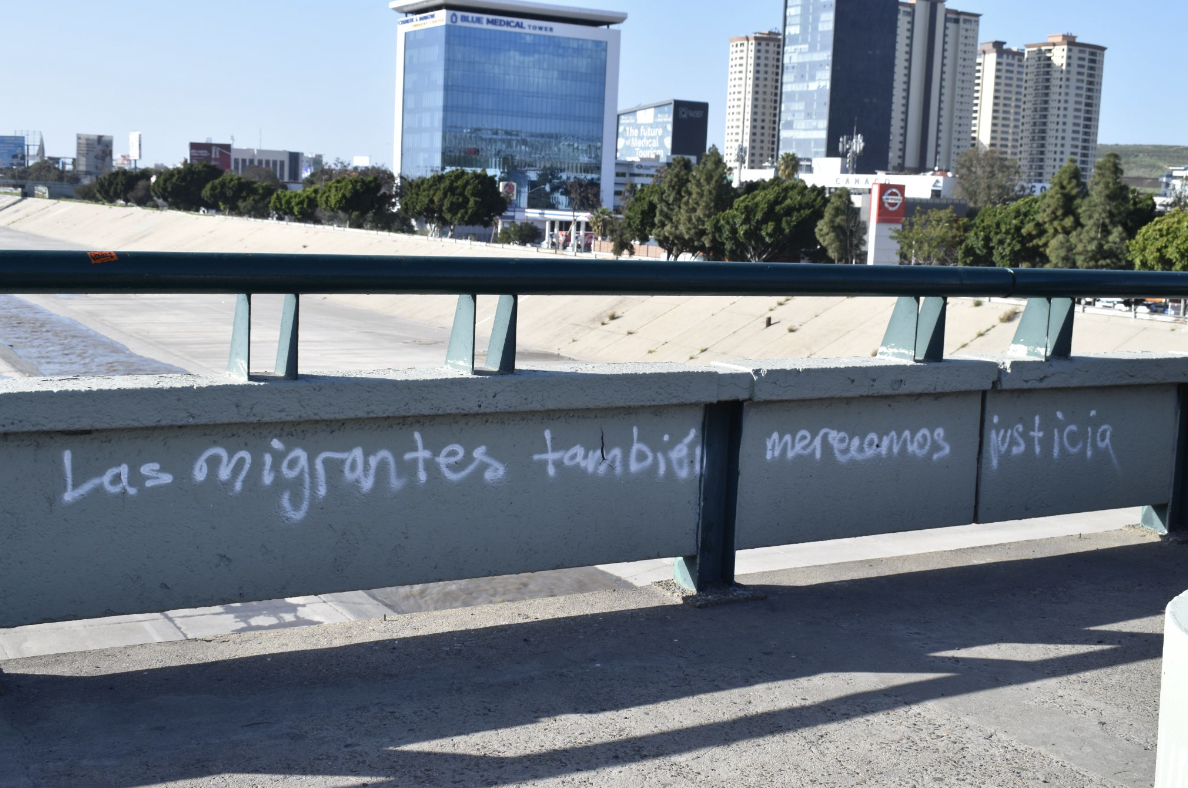 BLUE MEDICAL TOWER
The future
of Medical
Tourism
CANACO
NISSAN
Las migrantes también merecemos justicia